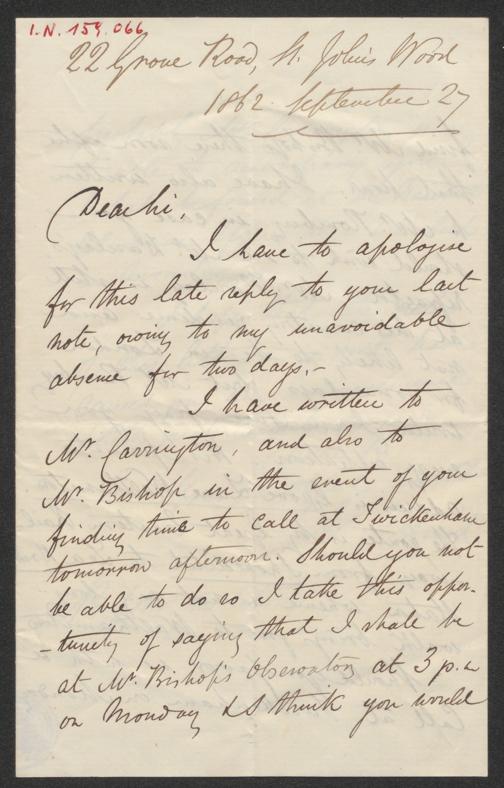 I.N. 159.066
22 Grove Road, St. John's Wood
1862. September 27
Dear Sir,
I have to apologise
for this late reply to your last
note, owing to my unavoidable
absence for two days.-
I have written to
Mr. Carrington, and also to
Mr. Bishop in the event of your
finding time to call at Twickenham
tomorrow afternoon. Should you not
be able to do so I take this oppor-
-tunity of saying that I shall be
at Mr. Bishop's Observatory at 3 p.m
on Monday & I think you would